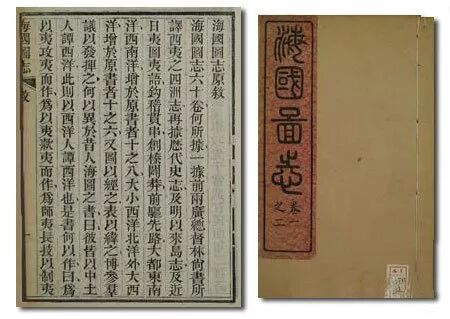 海國圖志原敘
海國圖志六十卷何所據一據前兩廣總督林尚書所
譯西夷之四洲志再據歷代史志及明以來島志及近
日夷圖夷語鉤稽貫串創榛闢莽前驅先路大都東南
洋西南洋增於原書者十之八大小西洋北洋外大西
洋增於原書者十之六又圖以經之表以緯之博參羣
議以發揮之何以異於昔人海圖之書曰彼皆以中土
人譚西洋此則以西洋人譚西洋也是書何以作曰爲
以夷攻夷而作爲以夷款夷而作爲師夷長技以制夷
海國圖志 敘 一
海國圖志
卷一之二